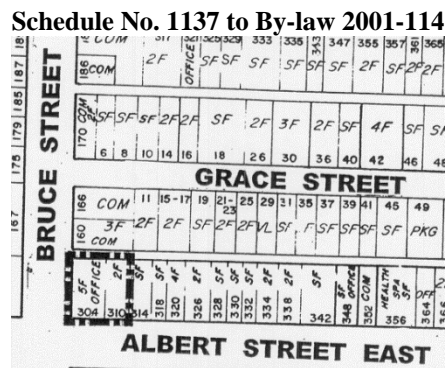 Schedule No. 1137 to By-law 2001-114
COM 317 OFFICE 325 329 333 335 343 347 355 357 361 365
186 COM 2F SF SF SF SF SF SF 2F SF 2F 2F
170 COM 2F SF SF SF 2F 2F SF 2F 3F 2F SF 4F SF SF
6 8 10 14 16 18 26 30 36 40 42 46 48
175 179 185 187
GRACE STREET
BRUCE STREET
167
166 COM 11 15-17 19 21-23 25 29 31 35 37 39 41 45 49
160 3F COM 2F 2F SF 2F 2F VL SF F SF SF SF SF PKG
5F OFFICE 2F SF SF 4F 2F SF SF SF 2F 2F SF SF OFFICE COM HEALTH SPA SF OFF
304 310 314 318 320 326 328 330 332 334 338 342 348 352 356 364 366
ALBERT STREET EAST